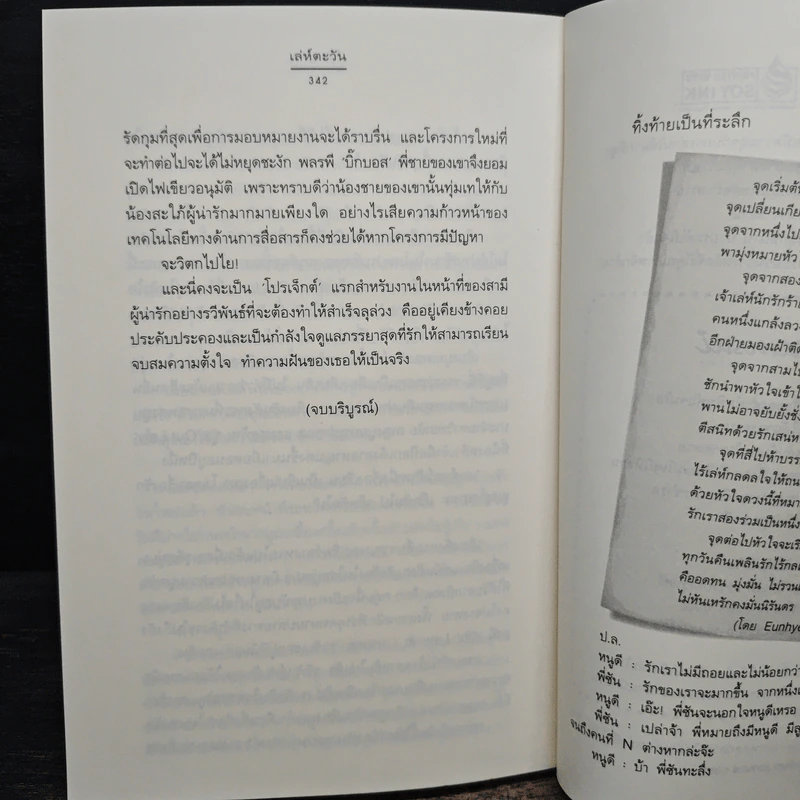 เล่ห์ตะวัน
342
รัดกุมที่สุดเพื่อการมอบหมายงานจะได้ราบรื่น และโครงการใหม่ที่
จะทำต่อไปจะได้ไม่หยุดชะงัก พลรพี ‘บิ๊กบอส’ พี่ชายของเขาจึงยอม
เปิดไฟเขียวอนุมัติ เพราะทราบดีว่าน้องชายของเขานั้นทุ่มเทให้กับ
น้องสะใภ้ผู้น่ารักมากมายเพียงใด อย่างไรเสียความก้าวหน้าของ
เทคโนโลยีทางด้านการสื่อสารก็คงช่วยได้หากโครงการมีปัญหา
จะวิตกไปไย!
และนี่คงจะเป็น ‘โปรเจ็กต์’ แรกสำหรับงานในหน้าที่ของสามี
ผู้น่ารักอย่างรวีพันธ์ที่จะต้องทำให้สำเร็จลุล่วง คืออยู่เคียงข้างคอย
ประคับประคองและเป็นกำลังใจดูแลภรรยาสุดที่รักให้สามารถเรียน
จบสมความตั้งใจ ทำความฝันของเธอให้เป็นจริง
(จบบริบูรณ์)
SOY INK
ทิ้งท้ายเป็นที่ระลึก
จุดเริ่มต้น
จุดเปลี่ยนเกีย
จุดจากหนึ่งไป
พามุ่งหมายหัว
จุดจากสอง
เจ้าเล่ห์นักรักร้า
คนหนึ่งแกล้งลว
อีกฝ่ายมองเฝ้าติด
จุดจากสามไป
ชักนำพาหัวใจเข้าใ
พานไม่อาจยับยั้งชั่ง
ตีสนิทด้วยรักเสน่ห
จุดที่สี่ไปห้าบรร
ไร้เล่ห์กลดลใจให้ถน
ด้วยหัวใจดวงนี้ที่หมา
รักเราสองร่วมเป็นหนึ่ง
จุดต่อไปหัวใจจะเรี
ทุกวันคืนเพลินรักไร้กล
คืออดทน มุ่งมั่น ไม่รวน
ไม่หันเหรักคงมั่นนิรันดร
(โดย Eunhye
ป.ล.
หนูดี : รักเราไม่มีถอยและไม่น้อยกว่า
พี่ซัน : รักของเราจะมากขึ้น จากหนึ่งเ
หนูดี : เอ๊ะ! พี่ซันจะนอกใจหนูดีเหรอ
พี่ซัน : เปล่าจ้า พี่หมายถึงมีหนูดี มีลู
จนถึงคนที่ N ต่างหากล่ะจ๊ะ
หนูดี : บ้า พี่ซันทะลึ่ง